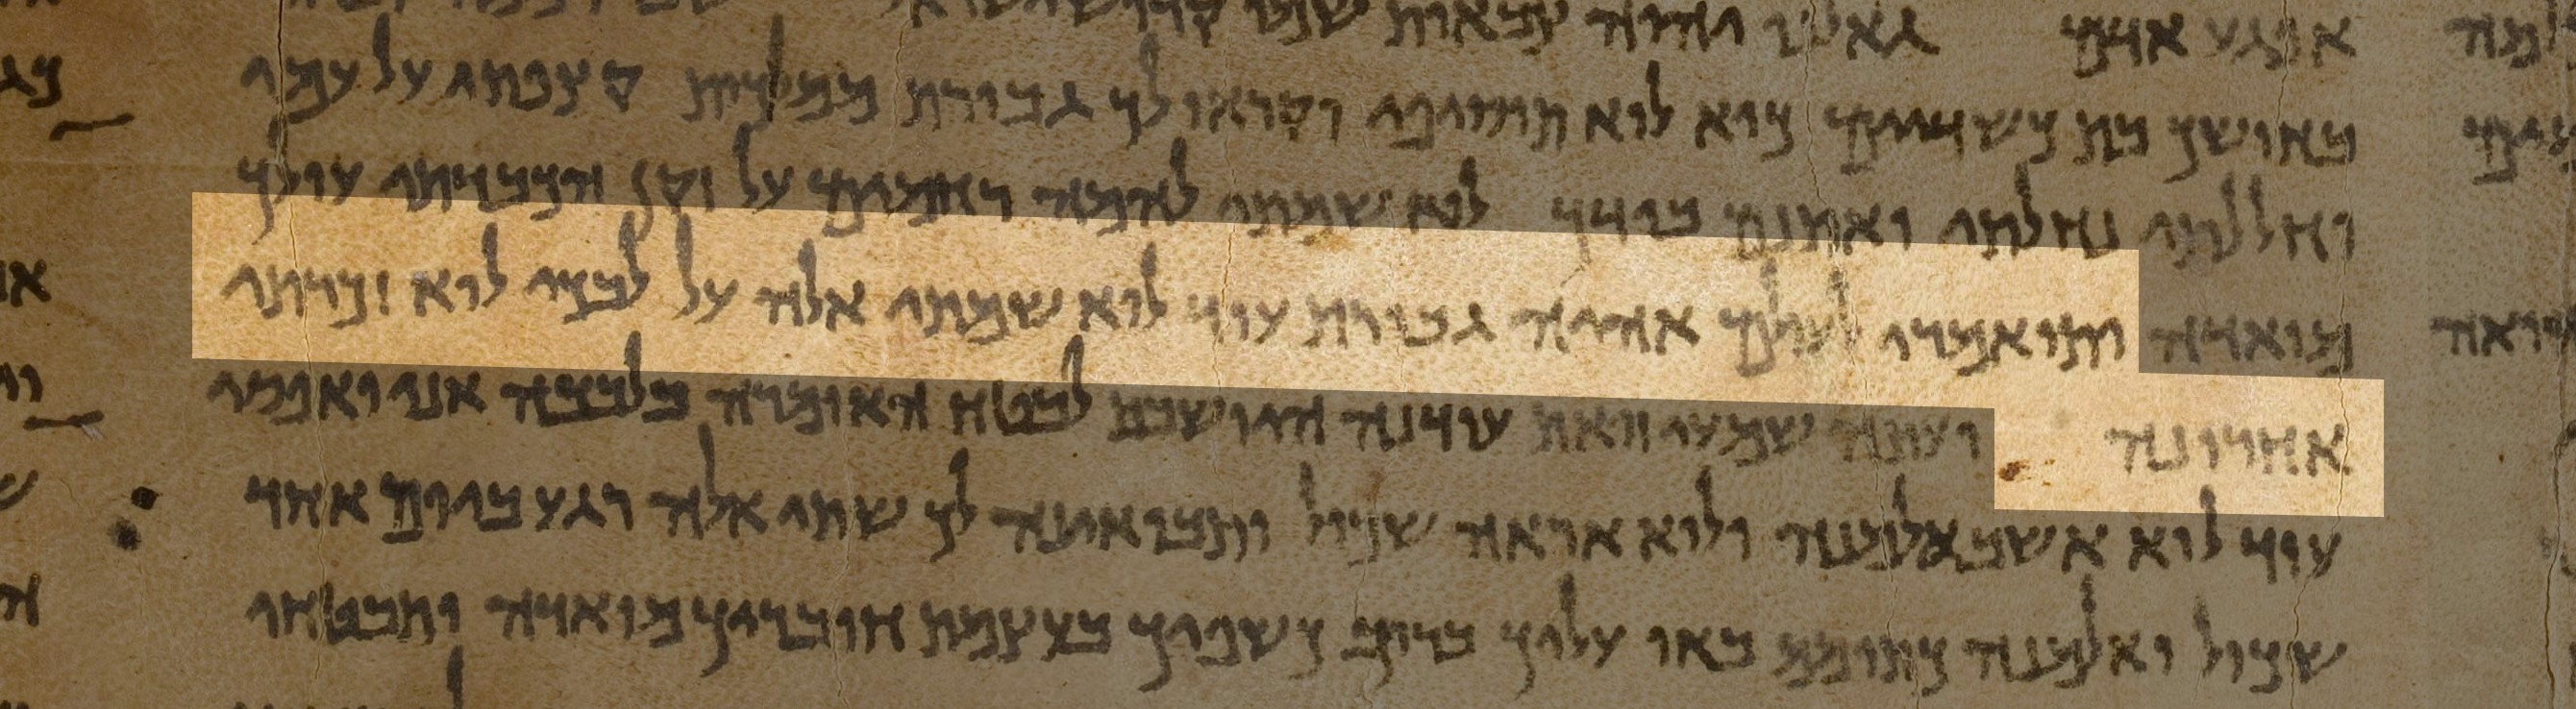 אפגע אדם גאלנו יהוה צבאות שמו קדוש ישראל
באושך בת כשדיים כיא לוא תוסיפי יקראו לך גבורת ממלכות קצפתי על עמי
וחללתי נחלתי ואתנם בידך לוא שמתי להמה רחמים על זקן הכבדתי עולך
מואדה ותואמרי לעולם אהיה גבורת עוד לוא שמתי אלה על לבכי לוא זכרתי
אחרונה ועתה שמעי זואת עדינה היושבת לבטח האומרה בלבבה אני ואפסי
עוד לוא אשב אלמנה ולוא אראה שכול ותבואינה לך שתי אלה רגע ביום אחד
שכול ואלמנה כתומם באו עליך ברוב כשפיך בעצמת חובריך מואדה ותבטחי